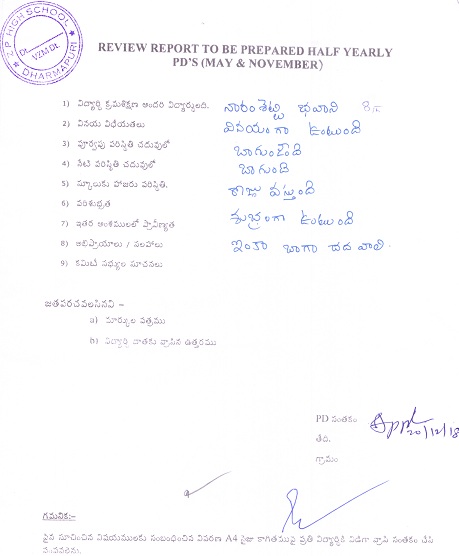 Z.P HIGH SCHOOL
DHARMAPURI
VZM Dt.
REVIEW REPORT TO BE PREPARED HALF YEARLY
PD'S (MAY & NOVEMBER)
1) విద్యార్థి క్రమశిక్షణ అందరి విద్యార్థులది. నారంశెట్టి భవాని
2) వినయ విధేయతలు వినయంగా ఉంటుంది
3) పూర్వపు పరిస్థితి చదువులో బాగుండేది
4) నేటి పరిస్థితి చదువులో బాగుంది
5) స్కూలుకు హాజరు పరిస్థితి. రోజూ వస్తుంది
6) పరిశుభ్రత శుభ్రంగా ఉంటుంది
7) ఇతర అంశములలో ప్రావీణ్యత
8) అభిప్రాయాలు / సలహాలు ఇంకా బాగా చదవాలి
9) కమిటీ సభ్యుల సూచనలు
జతపరచవలసినవి –
a) మార్కుల పత్రము
b) విద్యార్థి దాతకు వ్రాసిన ఉత్తరము
PD సంతకం
20/12/18
తేది.
గ్రామం
గమనిక:-
పైన సూచించిన విషయములకు సంబంధించిన వివరణ A4 సైజు కాగితముపై ప్రతి విద్యార్థికి విడిగా వ్రాసి సంతకం చేసి